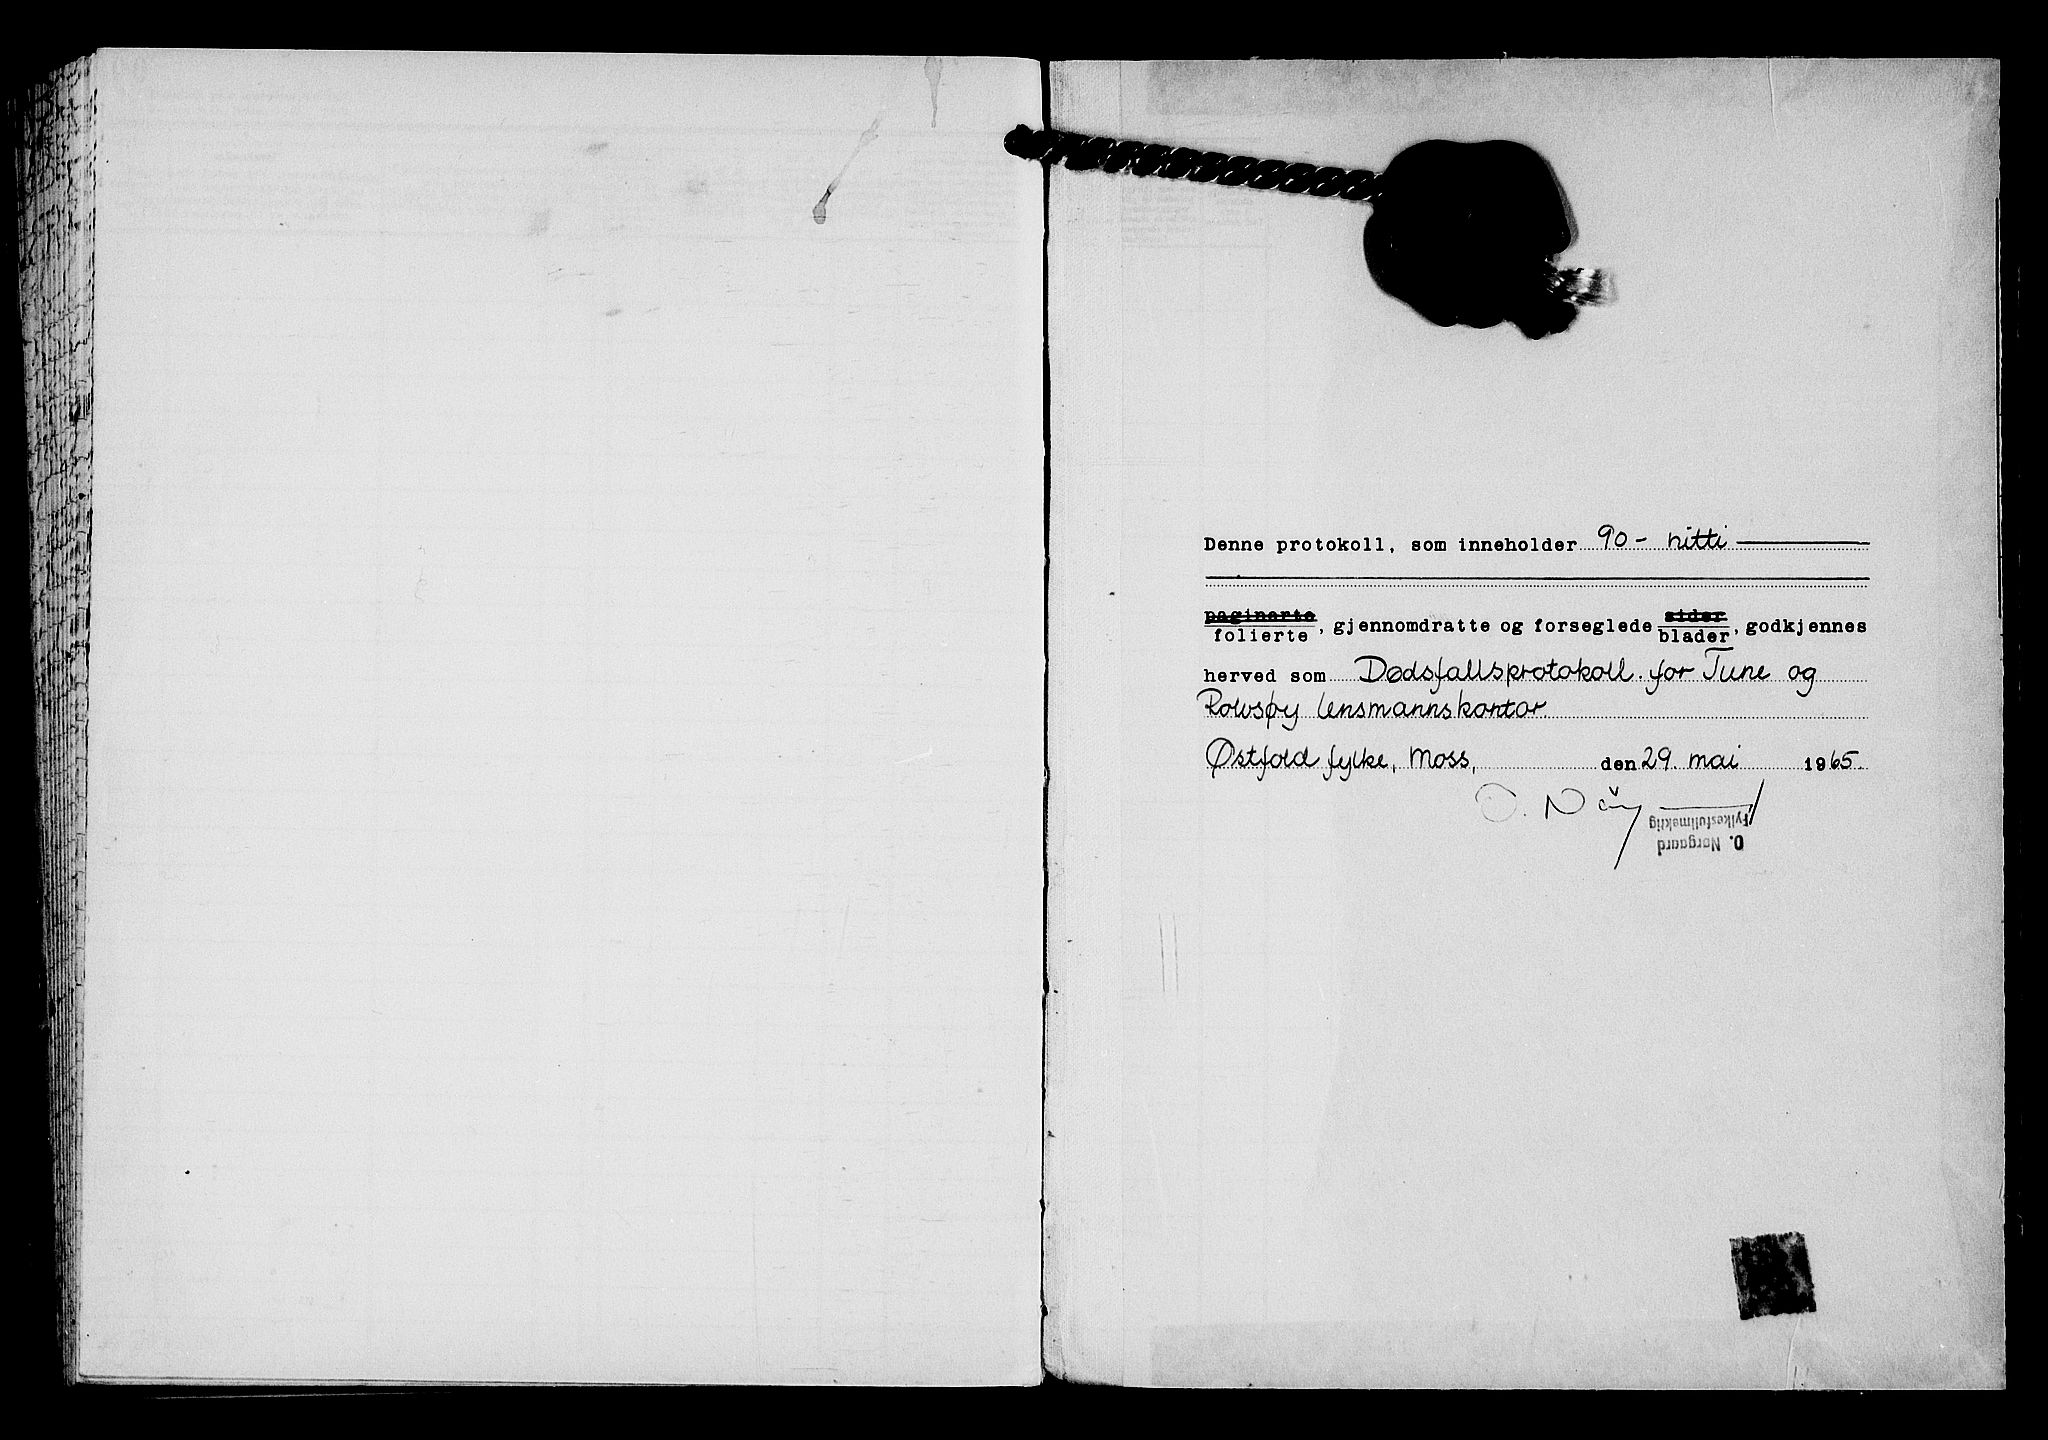 Denne protokoll, som inneholder 90 - nitti
paginerte sider
folierte, gjennomdratte og forseglede blader, godkjennes
herved som Dødsfallsprotokoll for Tune og
Rolvsøy lensmannskontor.
Østfold fylke, Moss, den 29. mai 1965.
O. Nørgaard
Fylkesfullmektig
O. Nørgaard